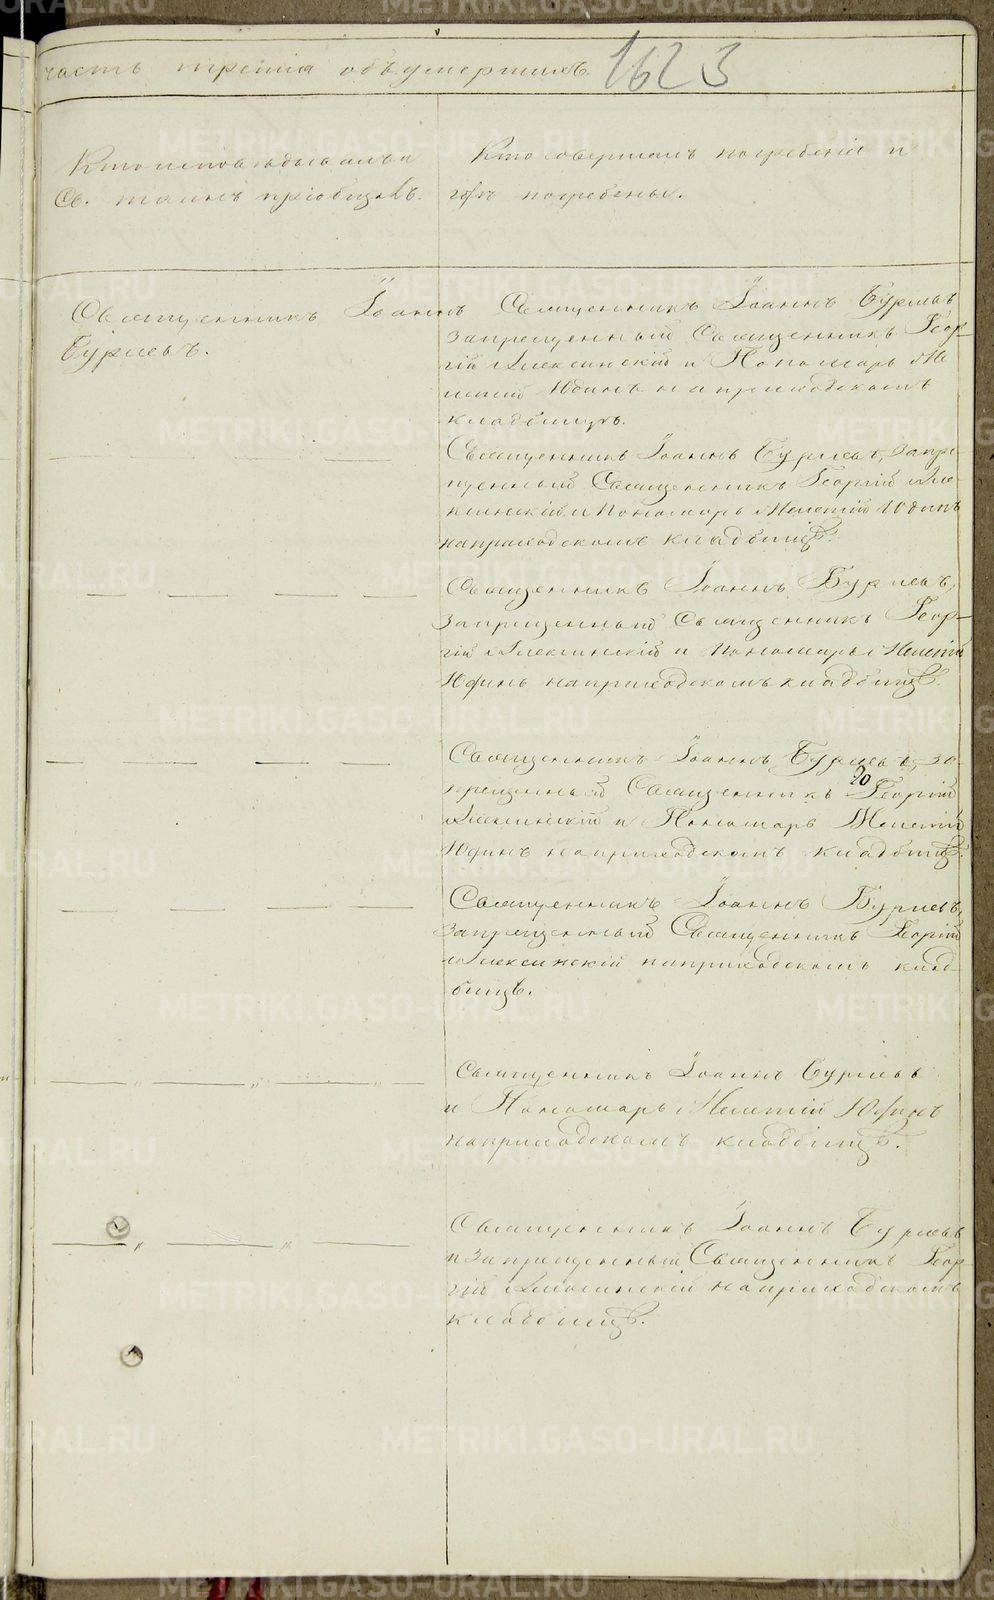 часть третія объ умершихъ. 1623
Кто исповѣдывалъ и
Св. таинъ пріобщалъ.
Кто совершалъ погребеніе и
гдѣ погребены.
Священникъ Іоаннъ
Бурлевъ.
Священникъ Іоаннъ Бурлевъ
запрещенный Священникъ Геор-
гій Алексинскій и Пономарь Ме
летій Юдинъ на приходскомъ
кладбищѣ.
Священникъ Іоаннъ Бурлевъ, запре-
щенный Священникъ Георгій Але-
ксинскій и Пономарь Мелетій Юдинъ
на приходскомъ кладбищѣ.
Священникъ Іоаннъ Бурлевъ,
запрещенный Священникъ Геор-
гій Алексинскій и Пономарь Мелетій
Юдинъ на приходскомъ кладбищѣ.
Священникъ Іоаннъ Бурлевъ, за-
прещенный Священникъ Георгій
Алексинскій и Пономарь Мелетій
Юдинъ на приходскомъ кладбищѣ.
Священникъ Іоаннъ Бурлевъ,
запрещенный Священникъ Георгій
Алексинскій на приходскомъ клад-
бищѣ.
Священникъ Іоаннъ Бурлевъ
и Пономарь Мелетій Юдинъ
на приходскомъ кладбищѣ.
Священникъ Іоаннъ Бурлевъ
и запрещенный Священникъ Геор-
гій Алексинскій на приходскомъ
кладбищѣ.
METRIKI.GASO-URAL.RU